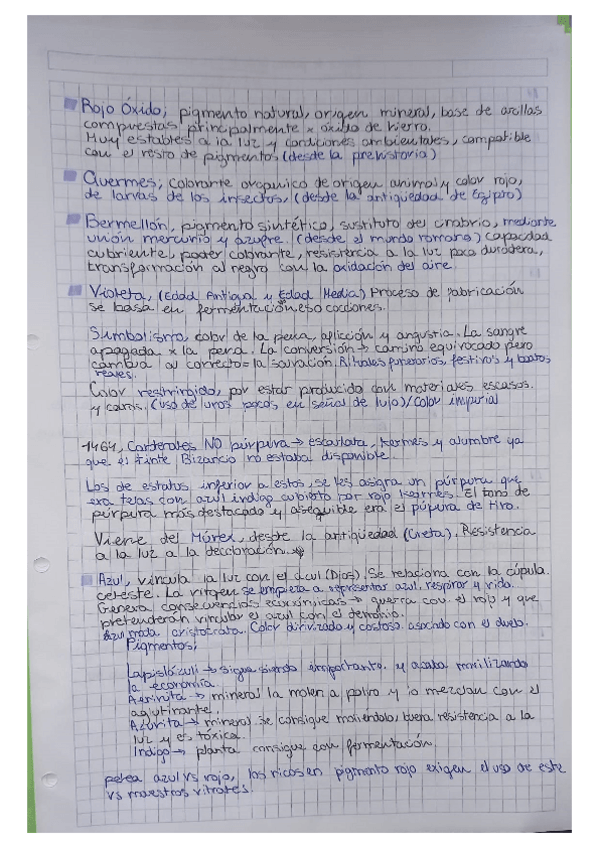 Rojo Óxido; pigmento natural, origen mineral, base de arcillas
compuestas principalmente x óxido de hierro.
Muy estables a la luz y condiciones ambientales, compatible
con el resto de pigmentos (desde la prehistoria)
Quermes; colorante orgánico de origen animal y color rojo,
de larvas de los insectos, (desde la antigüedad de Egipto)
Bermellón, pigmento sintético, sustituto del cinabrio, mediante
unión mercurio y azufre. (desde el mundo romano) capacidad
cubriente, poder colorante, resistencia a la luz poco duradera,
transformación al negro con la oxidación del aire.
Violeta, (Edad Antigua y Edad Media) Proceso de fabricación
se basa en fermentación, eso cocciones.
Simbolismo, color de la pena, aflicción y angustia. La sangre
apagada x la pena. La conversión → camino equivocado pero
cambia al correcto = la salvación. Rituales funerarios, festivos y
reales.
Color restringido, por estar producido con materiales escasos
y caros. (uso de unos pocos en señal de lujo) / color imperial
1464, Cardenales NO púrpura → escarlata, Kermes y alumbre ya
que el tinte Bizancio no estaba disponible.
Los de estatus inferior a estos, se les asigna un púrpura que
era telas con azul indigo cubierto por rojo kermes. El tono de
púrpura más destacado y asequible era el púpura de tiro.
Viene del Múrex, desde la antigüedad (Creta). Resistencia
a la luz a la decoloración.
Azul, vincula la luz con el azul (Dios). Se relaciona con la cúpula
celeste. La virgen se empieza a representar azul, respirar y vida.
Genera consecuencias económicas → guerra con el rojo y que
pretenderan vincular el azul con el demonio.
Azul moda aristócrata. Color y costoso asociado con el duelo.
Pigmentos;
Lapislázuli → sigue siendo importante y acaba movilizando
la economía
→ mineral la molen a polvo y lo mezclan con el
aglutinante.
Azurita → mineral se consigue moliendolo, buena resistencia a la
luz y es tóxica.
Indigo → planta consigue con fermentación.
pelea azul vs rojo, los ricos en pigmento rojo exigen el uso de este
vs maestros vitrales.